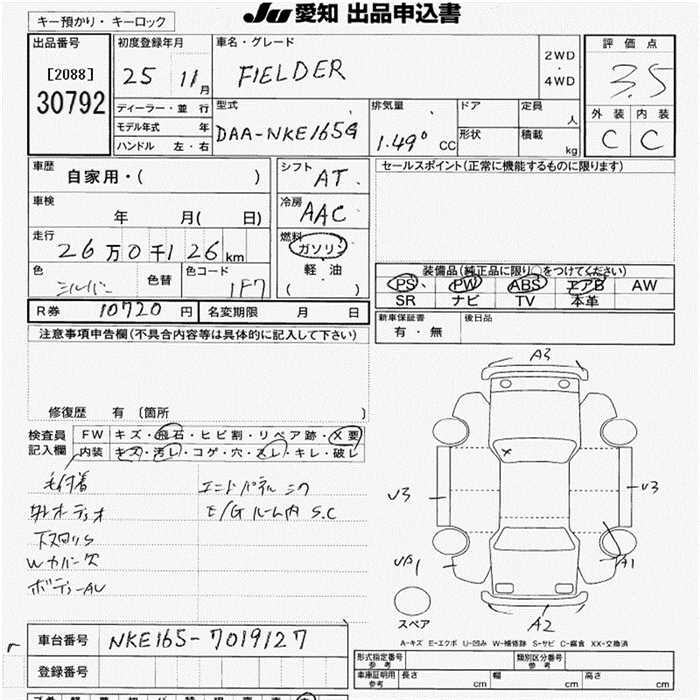 キー預かり・キーロック
JU愛知 出品申込書
出品番号
[2088]
30792
初度登録年月
25 11月
車名・グレード
FIELDER
2WD
・
4WD
評価点
3.5
外装 内装
C C
ディーラー・並行
モデル年式 年
ハンドル 左・右
型式
DAA-NKE165G
排気量
1.49⁰ CC
ドア
形状
定員
人
積載
kg
車歴
自家用・( )
車検
年 月( 日)
走行
26万0千126km
色
シルバー
色替
色コード
1F7
シフト
AT
冷房
AAC
燃料
ガソリン
軽油
( )
セールスポイント(正常に機能するものに限ります)
装備品(純正品に限り○をつけてください)
PS PW ABS エアB AW
SR ナビ TV 本革
R券 10720 円
名変期限 月 日
新車保証書
有・無
後日品
注意事項申告欄(不具合内容等は具体的に記入して下さい)
修復歴 有〔箇所 〕
検査員
記入欄
FW キズ・飛石・ヒビ割・リペア跡・X要
内装 キズ・汚レ・コゲ・穴・スレ・キレ・破レ
エンドパネルシワ
E/Gルーム内 S.C
下廻りS
Wカバー欠
A3
V3
V3
A1
A2
スペア
A-キズ E-エクボ U-凹み W-補修跡 S-サビ C-腐食 XX-交換済
車台番号 NKE165-7019127
登録番号
形式指定番号
参考
類別区分番号
参考
車庫証明用
参考
長さ cm 幅 cm 高さ cm